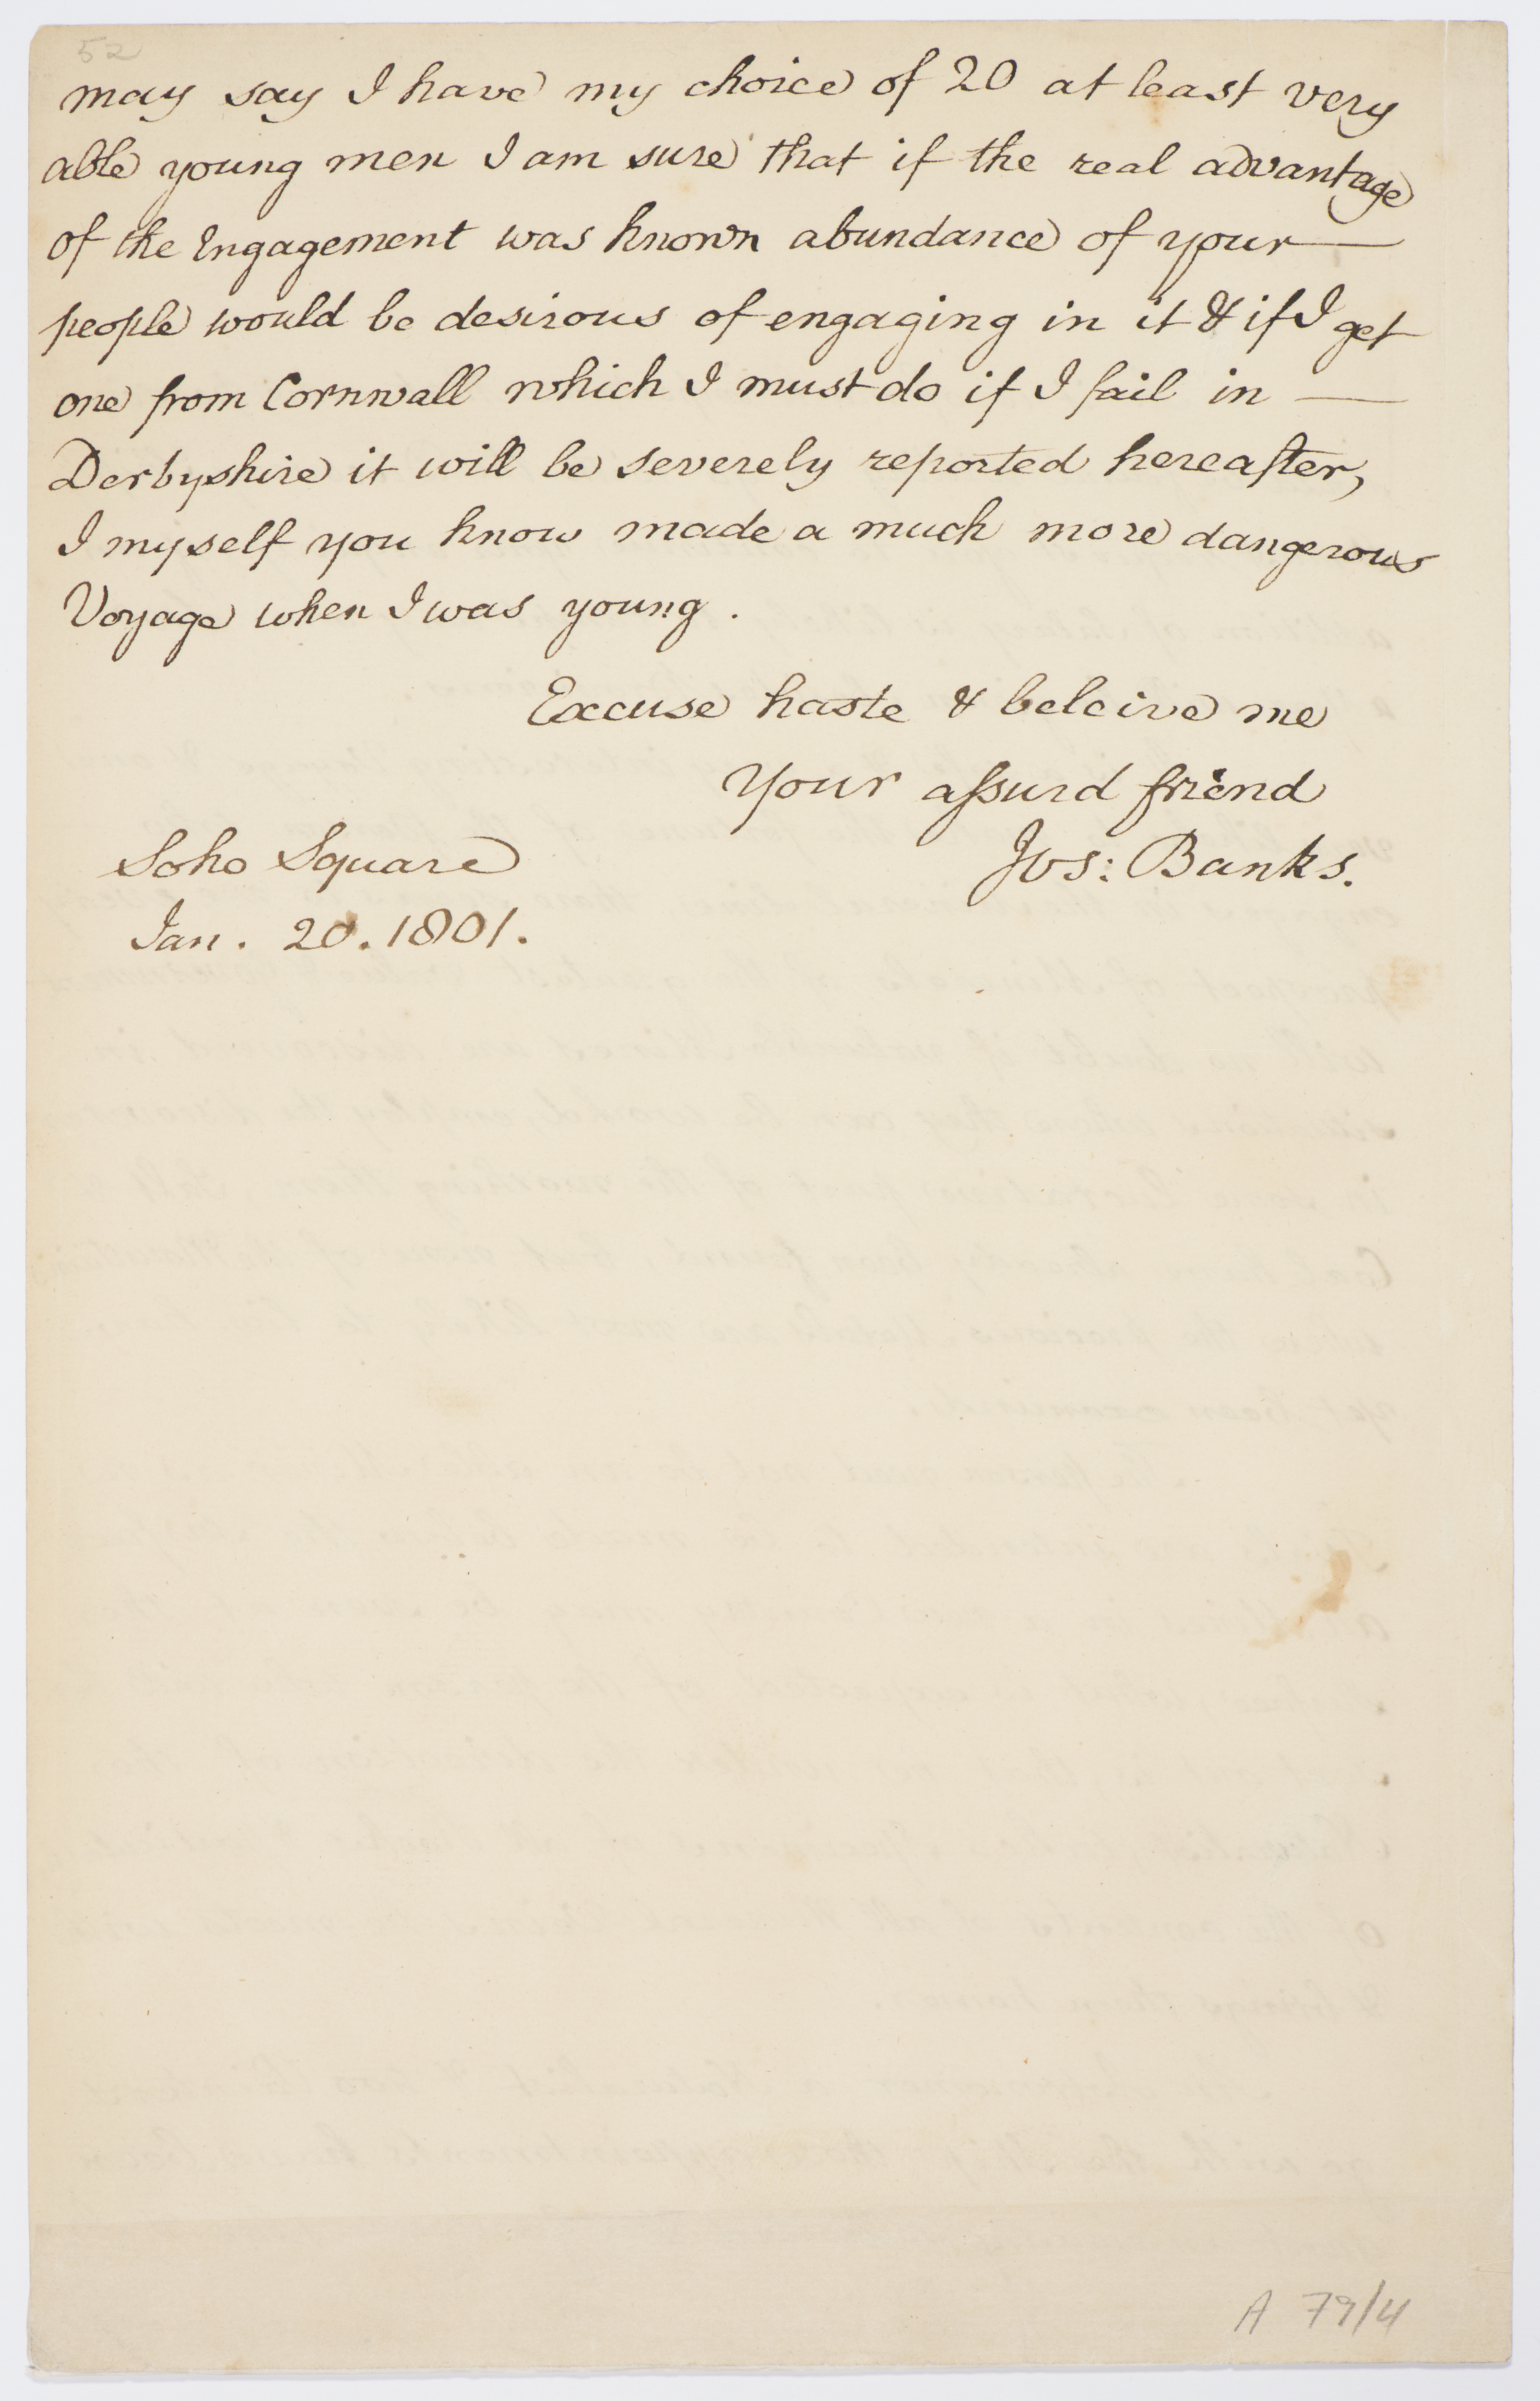 52
may say I have my choice of 20 at least very
able young men I am sure that if the real advantage
of the Engagement was known abundance of your —
people would be desirous of engaging in it & if I get
one from Cornwall which I must do if I fail in —
Derbyshire it will be severely reported hereafter,
I myself you know made a much more dangerous
Voyage when I was young .
Excuse haste & beleive me
Your aſsurd friend
Jos: Banks.
Soho Square
Jan . 20 . 1801 .
A 79/4